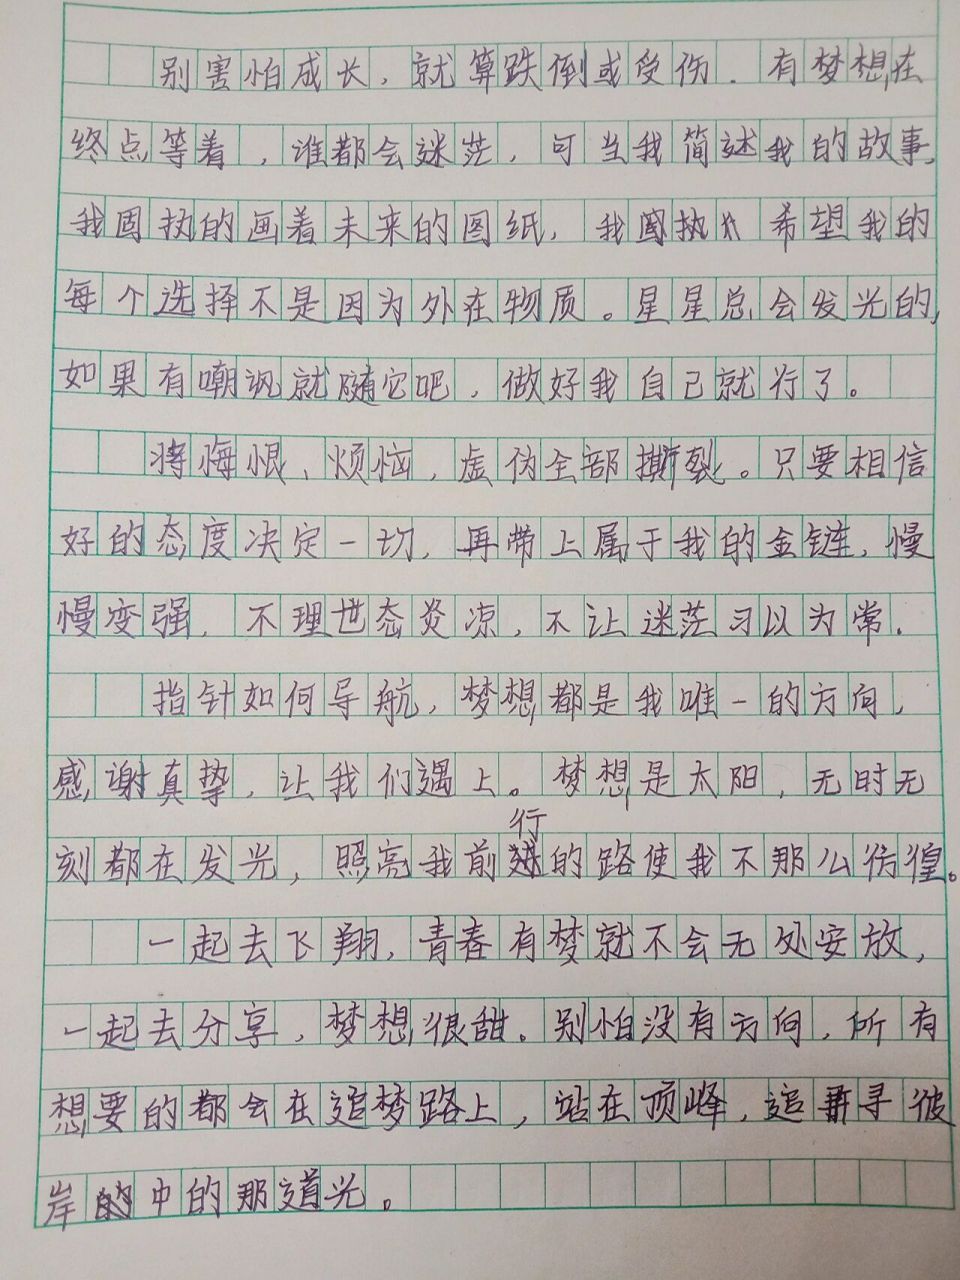 别害怕成长，就算跌倒或受伤．有梦想在
终点等着，谁都会迷茫，可当我简述我的故事，
我固执的画着未来的图纸，我固执 希望我的
每个选择不是因为外在物质。星星总会发光的，
如果有嘲讽就随它吧，做好我自己就行了。
将悔恨、烦恼，虚伪全部撕裂。只要相信
好的态度决定一切，再带上属于我的金链，慢
慢变强，不理世态炎凉，不让迷茫习以为常．
指针如何导航，梦想都是我唯一的方向，
感谢真挚，让我们遇上。梦想是太阳，无时无
刻都在发光，照亮我前行的路使我不那么彷徨。
一起去飞翔，青春有梦就不会无处安放，
一起去分享，梦想很甜。别怕没有方向，所有
想要的都会在追梦路上，站在顶峰，追寻彼
岸中的那道光。